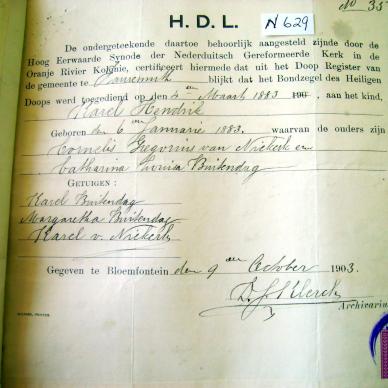 No 35
H. D. L.
N 629
De ondergeteekende daartoe behoorlijk aangesteld zijnde door de
Hoog Eerwaarde Synode der Nederduitsch Gereformeerde Kerk in de
Oranje Rivier Kolonie, certificeert hiermede dat uit het Doop Register van
de gemeente te Fauresmith blijkt dat het Bondzegel des Heiligen
Doops werd toegediend op den 4en Maart 1883 190 , aan het kind,
Karel Hendrik
Geboren den 6en Januarie 1883. waarvan de ouders zijn
Cornelis Gregorius van Niekerk en
Catharina Louisa Buitendag
Getuigen :
Karel Buitendag
Margaretha Buitendag
Karel v. Niekerk
Gegeven te Bloemfontein den 9en October 1903.
Klerck
Archivarius